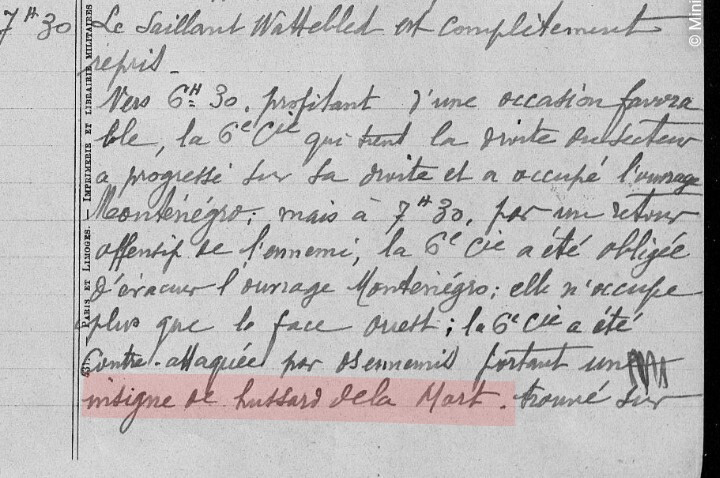 7H30 Le Saillant Wattebled est complètement
repris.
Vers 6H30, profitant d'une occasion favora
ble, la 6e Cie qui tient la droite du secteur
a progressé sur sa droite et a occupé l'ouvrage
Monténégro; mais à 7H30, par un retour
offensif de l'ennemi, la 6e Cie a été obligée
d'évacuer l'ouvrage Monténégro; elle n'occupe
plus que la face ouest; la 6e Cie a été
Contre-attaquée par des ennemis portant une
insigne de hussard de la Mort. trouvé sur
PARIS ET LIMOGES. — IMPRIMERIE ET LIBRAIRIE MILITAIRES
© Mini